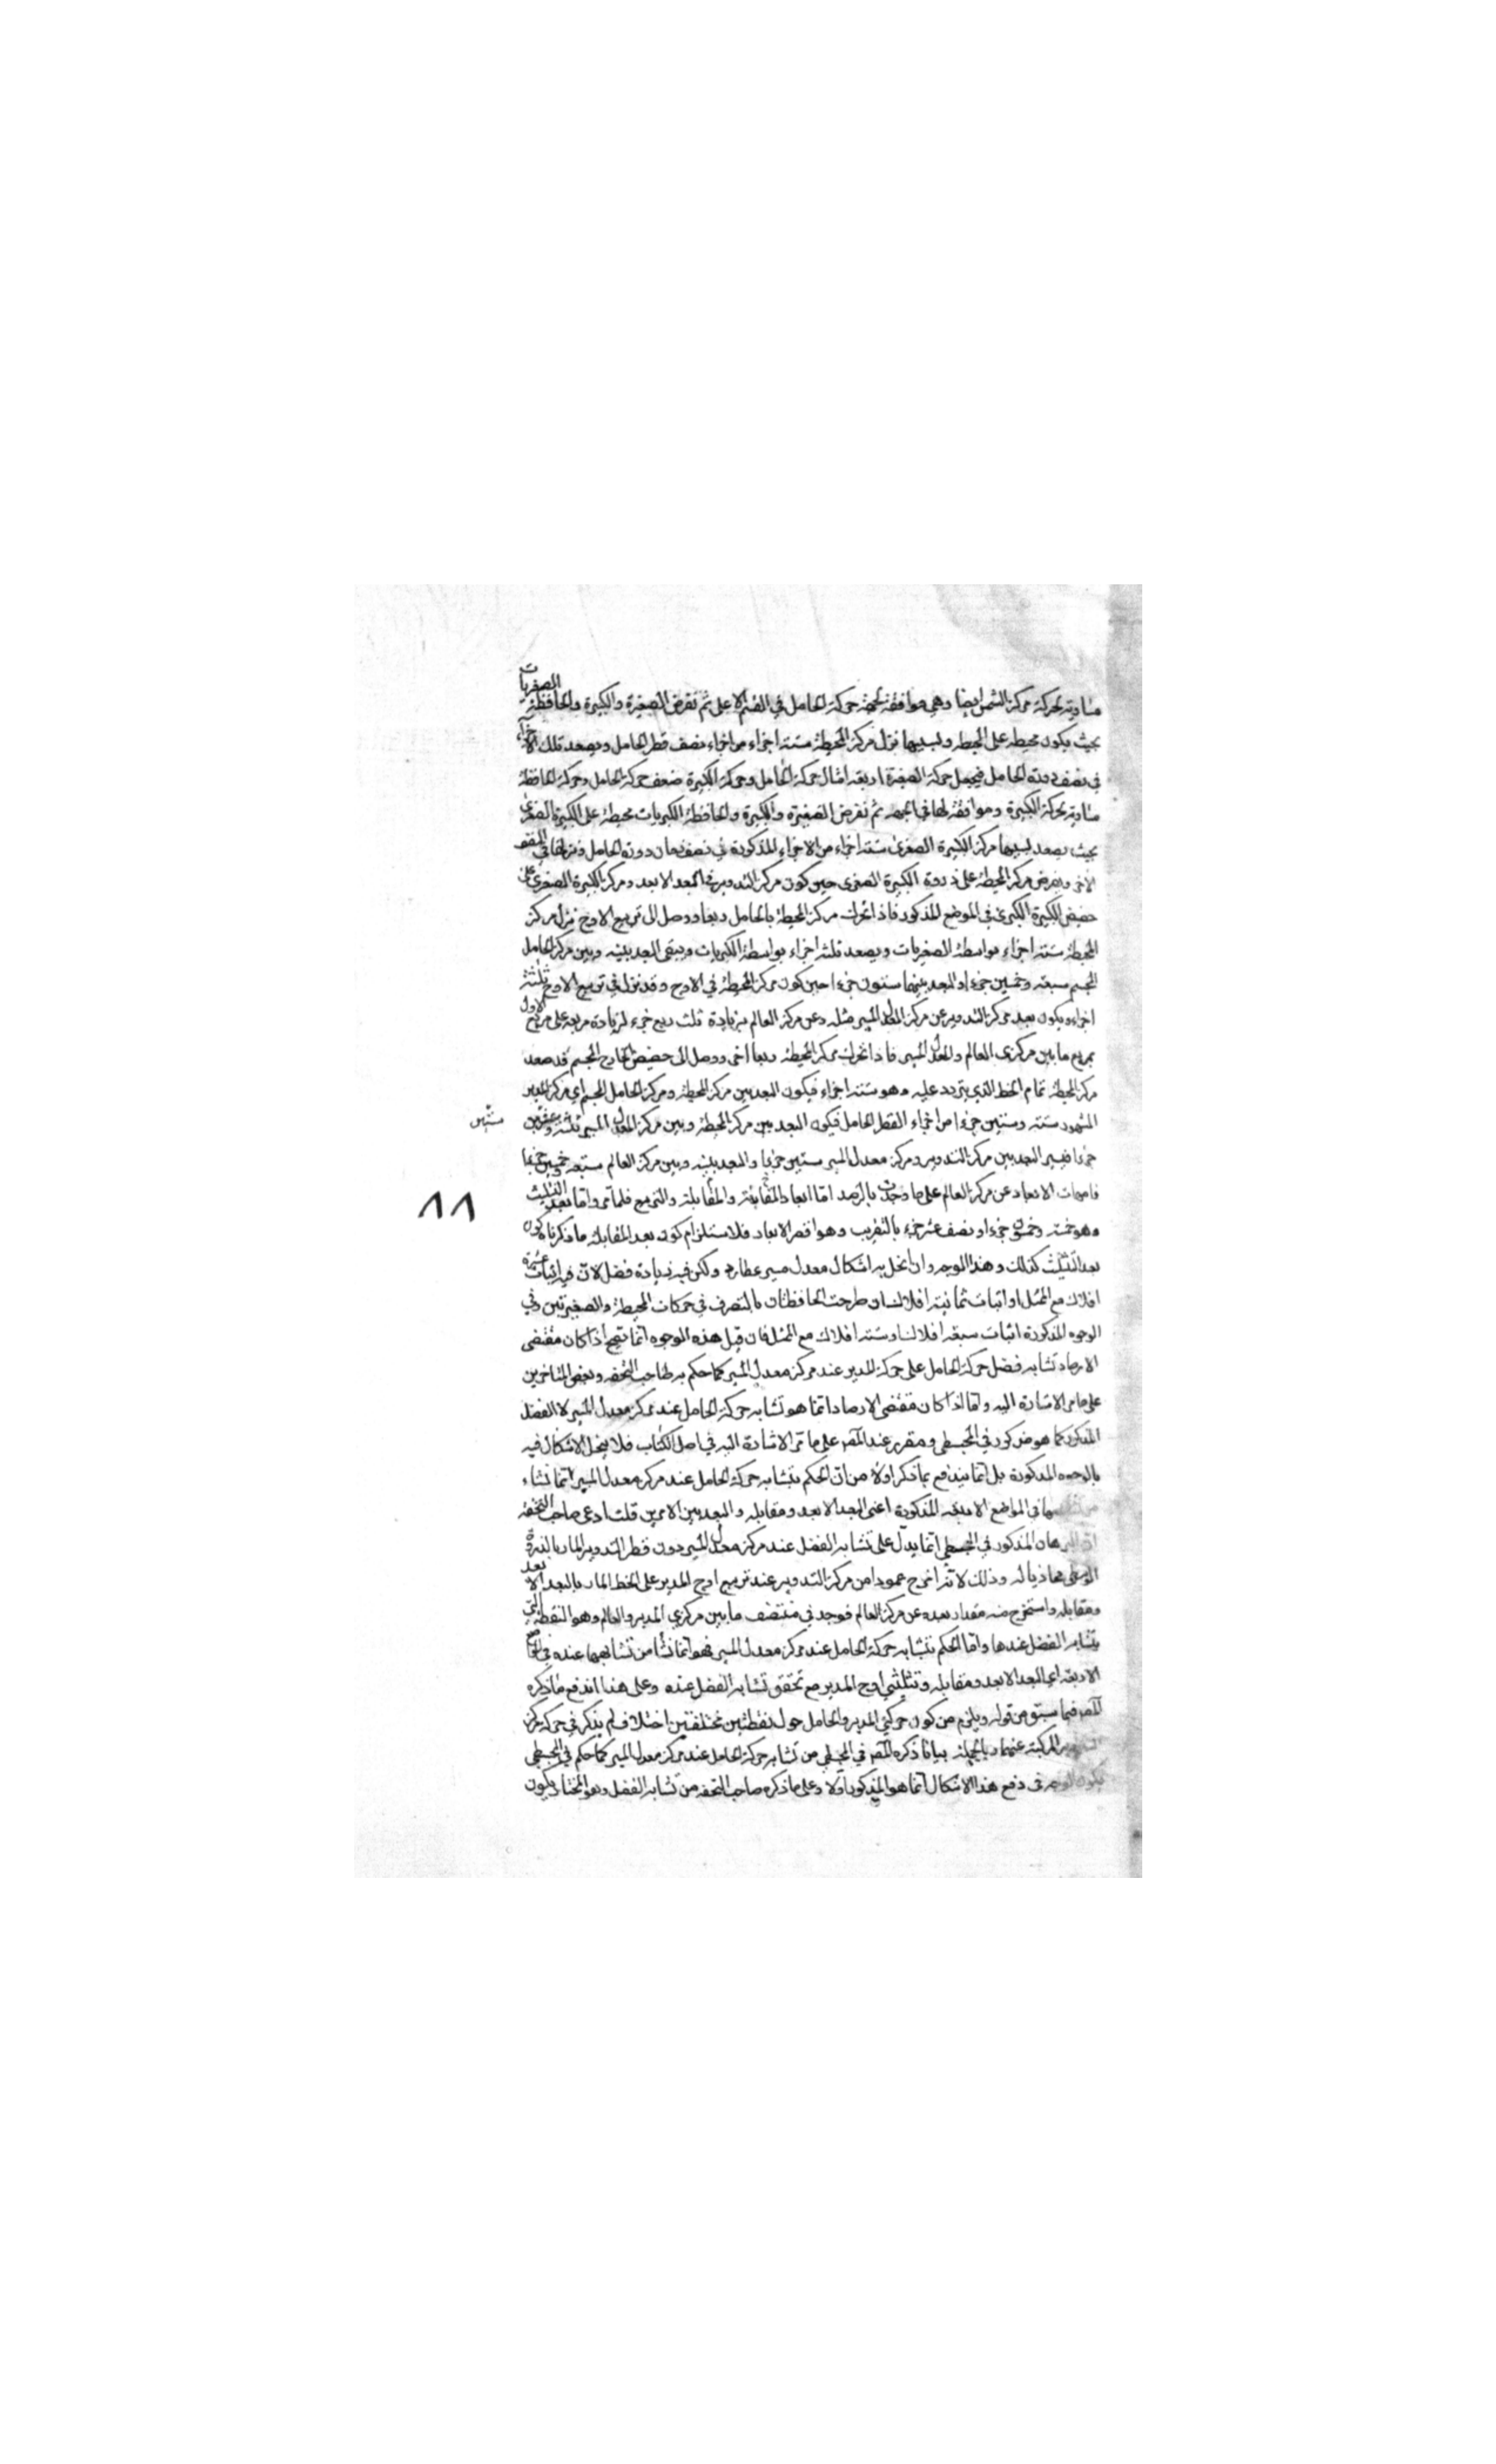 مساوية لحركة مركز الشمس ايضا وهي موافقة لجهة حركة الحامل في القسم الاعلى ثم نفرض الصغيرة والكبيرة والحافظة الصغريات
بحيث يكون محيطه على المحيطه وبسببها نزل مركز المحيطة ستة اجزاء من اجزاء نصف قطر الحامل ويصعد تلك الاجزاء
في نصف دورة الحامل فيجعل حركة الصغيرة اربعة امثال حركة الحامل وحركة الكبيرة ضعف حركة الحامل وحركة الحافظة
مساوية لحركة الكبيرة وموافقة لها في الجهه ثم نفرض الصغيرة والكبيرة والحافظة الكبريات محيطة على الكبيرة الصغرى
بحيث يصعد بسببها مركز الكبيرة الصغرى ستة اجزاء من الاجزاء المذكورة في نصف زمان دورة الحامل وينزلها في النصف
الاخر ونفرض مركز المحيطة على ذروة الكبيرة الصغرى حين كون مركز التدوير في البعد الابعد ومركز الكبيرة الصغرى على
حضيض الكبيرة الكبرى في الموضع المذكور فاذا تحرك مركز المحيطة بالحامل ربعا ووصل الى تربيع الاوج نزل مركز
المحيطة ستة اجزاء بواسطة الصغريات ويصعد ثلثة اجزاء بواسطة الكبريات ويبقى البعد بينه وبين مركز الحامل
المجسم سبعة وخمسين جزءا والبعد بينهما ستون جزءا حين كون مركز المحيطة في الاوج وقد نزل في تربيع الاوج ثلثة
اجزاء ويكون بعد مركز التدوير عن مركز المعدل المسير مثله وعن مركز العالم بزيادة ثلث ربع جزء لزيادة مربعه على مربع الاول
بمربع ما بين مركزي العالم والمعدل المسير فاذا تحرك مركز المحيطة ربعا اخر ووصل الى حضيض الخارج المجسم قد صعد
مركز المحيطة تمام الخط الذي يتردد عليه وهو ستة اجزاء فيكون البعد بين مركز المحيطة ومركز الحامل المجسم اي مركز المدير
المشهور ستة وستين جزءا من اجزاء القطر الحامل فيكون البعد بين مركز المحيطة وبين مركز المعدل المسير ثلثة وستين
جزءا فيصير البعد بين مركز التدوير ومركز معدل المسير ستين جزءا والبعد بينه وبين مركز العالم سبعة وخمسين جزءا
فامهات الابعاد عن مركز العالم على ما وجدت بالرصد اما ابعاد المقارنة والمقابلة والتربيع فلما مر واما بعد التثليث
٨٨
وهو خمسة وخمسون جزءا ونصف عشر جزء بالتقريب وهو اقصر الابعاد فلاستلزام كون بعد المقابلة ما ذكرناه كون
بعد التثليث كذلك وهذا الوجه وان انحل به اشكال معدل مسير عطارد ولكن فيه زيادة فضل لان فيه اثبات عشرة
افلاك مع الممثل او اثبات ثمانية افلاك ان طرحت الحافظتان بالتصرف في حركات المحيطة والصغيرتين وفي
الوجوه المذكورة اثبات سبعة افلاك او ستة افلاك مع الممثل فان قيل هذه الوجوه انما تصح اذا كان مقتضى
الارصاد تشابه فضل حركة الحامل على حركة المدير عند مركز معدل المسير كما حكم به صاحب التحفه وبعض المتاخرين
على ما مر الاشارة اليه واما اذا كان مقتضى الارصاد انما هو تشابه حركة الحامل عند مركز معدل المسير لا الفضل
المذكور كما هو مذكور في المجسطي ومقرر عند المصر على ما مر الاشارة اليه في اصل الكتاب فلا ينحل الاشكال فيه
بالوجوه المذكورة بل انما يندفع بما ذكر اولا من ان الحكم بتشابه حركة الحامل عند مركز معدل المسير انما نشاء
في المواضع الاربعه المذكورة اعني البعد الابعد ومقابله والبعد بين الامرين قلت ادعى صاحب التحفه
ان البرهان المذكور في المجسطي انما يدل على تشابه الفضل عند مركز معدل المسير دون قطر التدوير المار بالذروة
محاذيا له وذلك لانه اخرج عمودا من مركز التدوير عند تربيع اوج المدير على الخط المار بالبعد الابعد
ومقابله واستخرج منه مقدار بعده عن مركز العالم فوجد في منتصف ما بين مركزي المدير والعالم وهو النقطة التي
يتشابه الفضل عندها واما الحكم بتشابه حركة الحامل عند مركز معدل المسير فهو انما نشأ من تشابهها عنده في المواضع
الاربعة اي البعد الابعد ومقابله وتثليثي اوج المدير مع تحقق تشابه الفضل عنده وعلى هذا اندفع ما ذكره
المصر فيما سبق من قوله ويلزم من كون حركتي المدير والحامل حول نقطتين مختلفتين اختلاف لم يذكر في حركة مركز
التدوير المركبة عنهما وبالجملة بناء ما ذكره المصر في المجسطي من تشابه حركة الحامل عند مركز معدل المسير كما حكم في المجسطي
يكون الوجه في دفع هذا الاشكال انما هو المذكور اولا وعلى ما ذكره صاحب التحفه من تشابه الفضل وهو المختار يكون